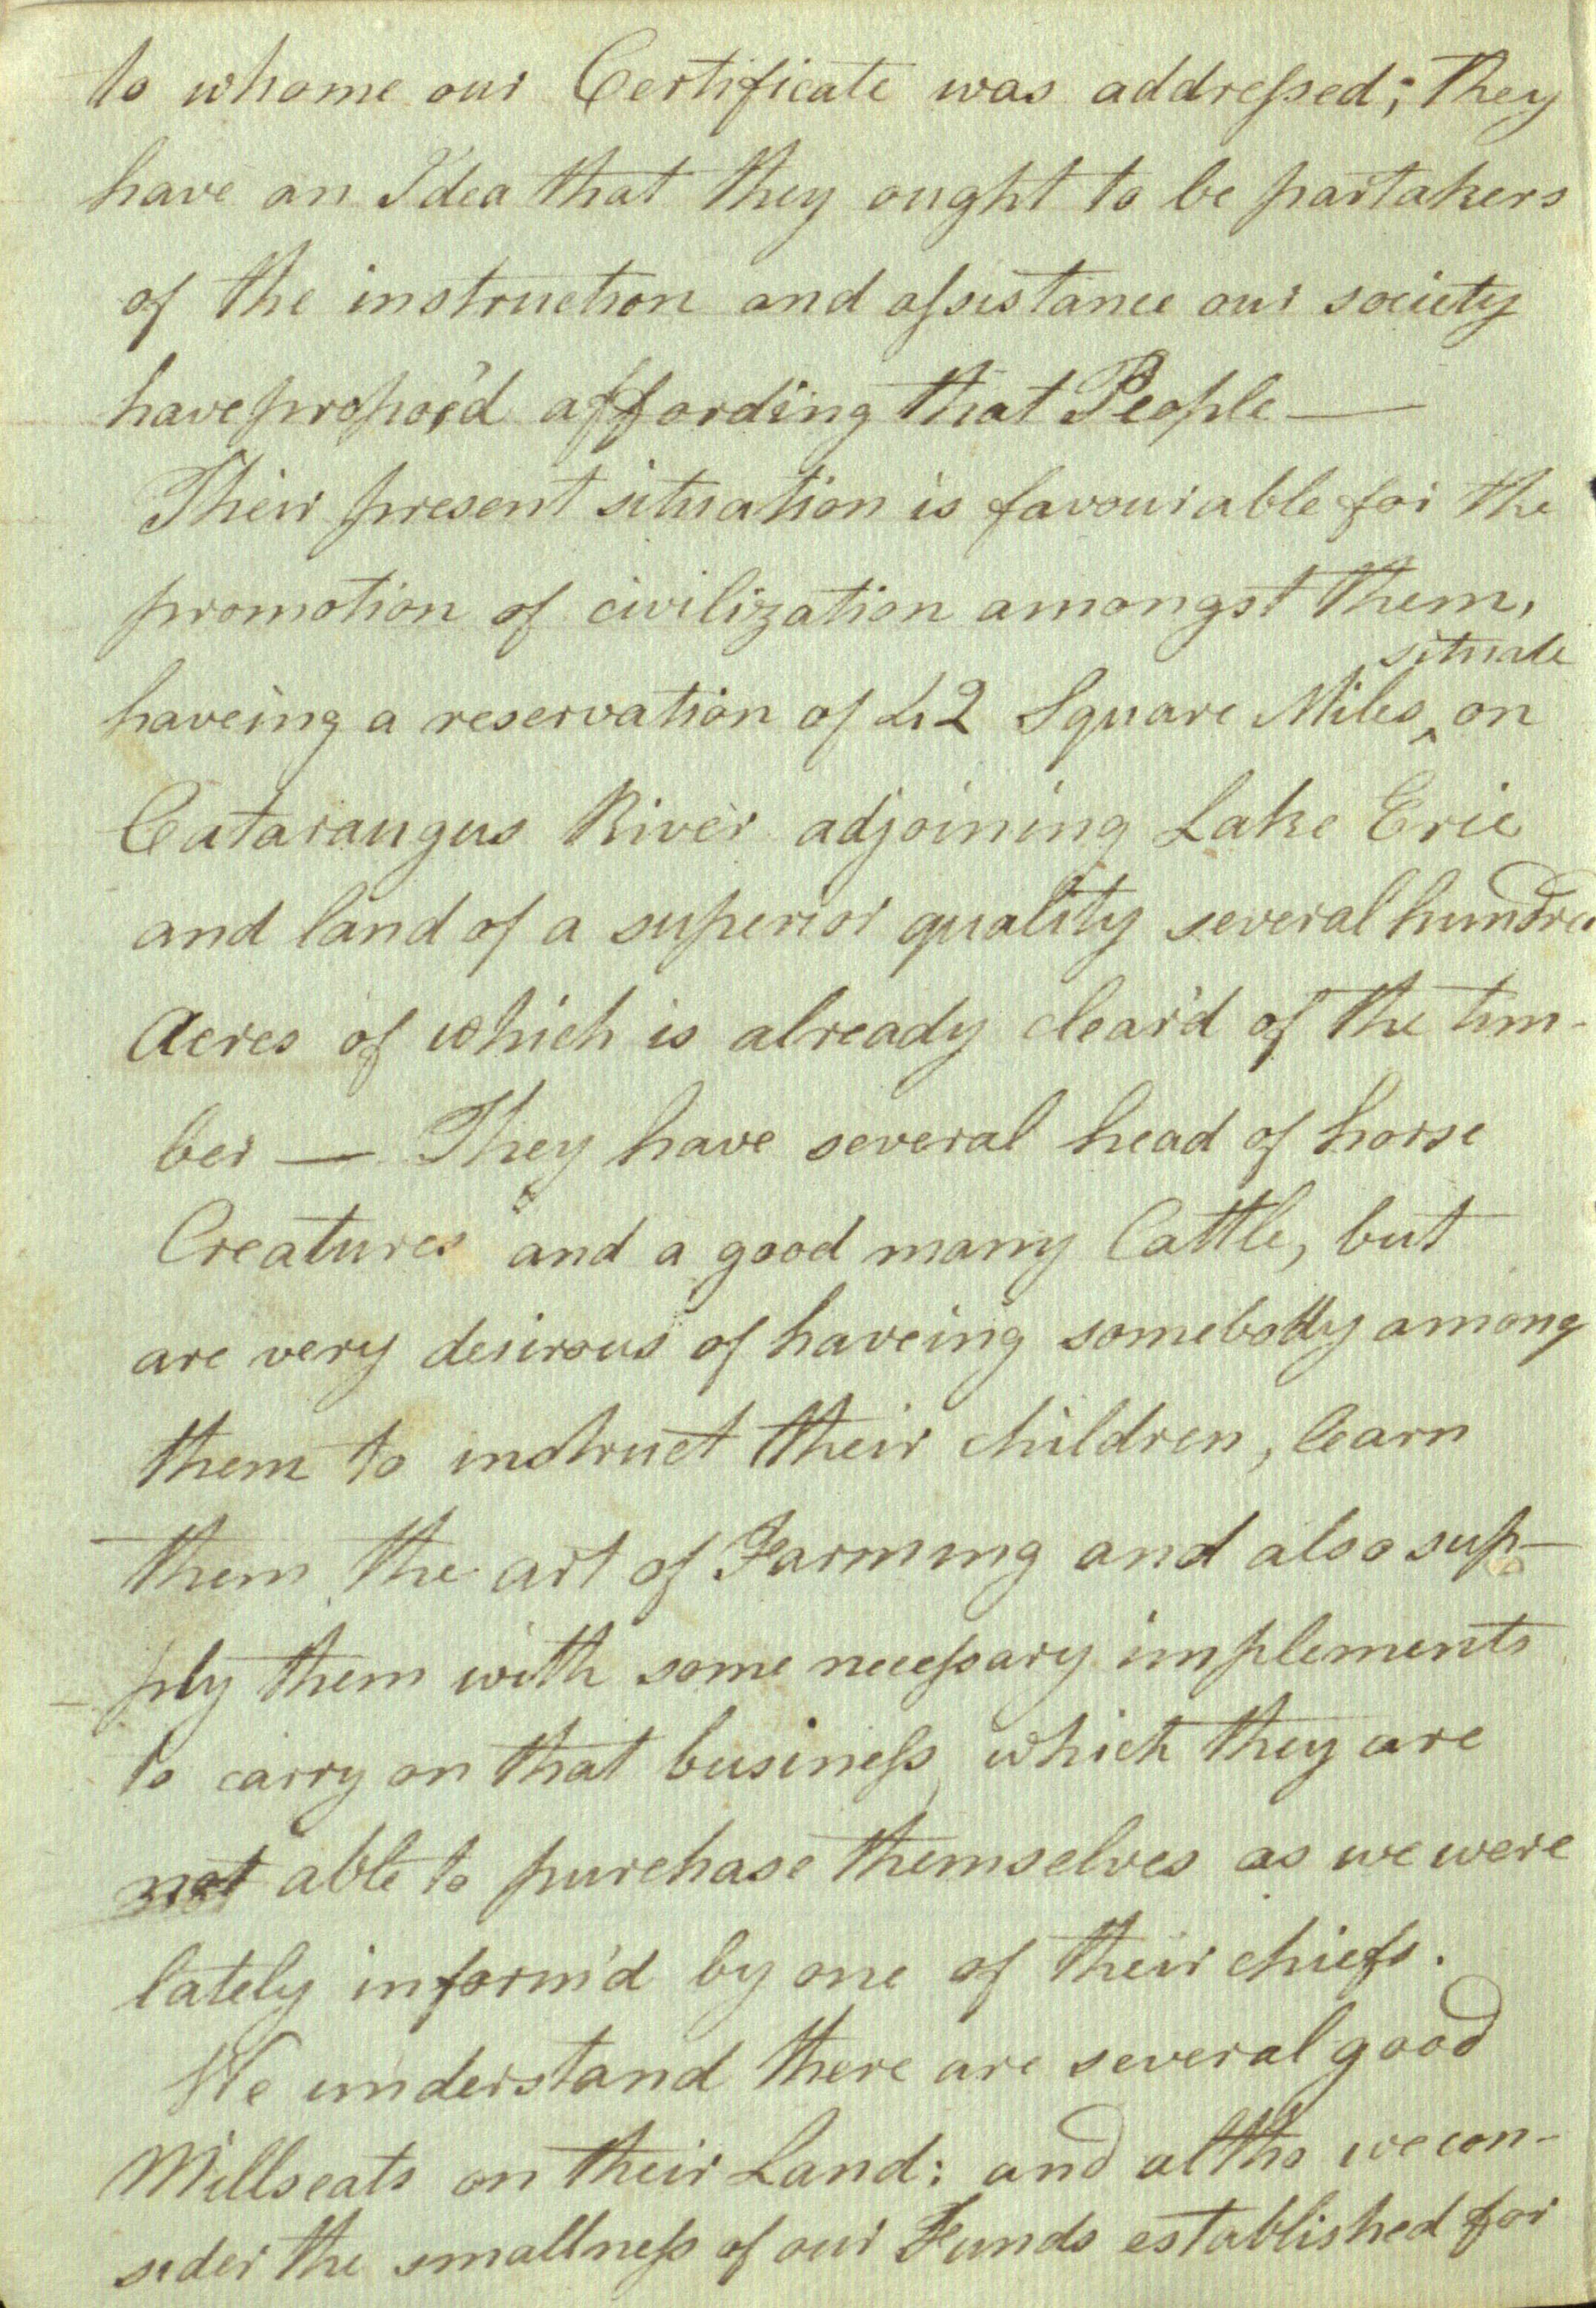 to whome our Certificate was addressed; they
have an Idea that they ought to be partakers
of the instruction and assistance our society
have propos'd affording that People —
Their present situation is favourable for the
promotion of civilization amongst them,
situate
haveing a reservation of 42 Square Miles ‸ on
Cataraugus River adjoining Lake Erie
and land of a superior quality several hundred
Acres of which is already clear'd of the tim-
ber — They have several head of horse
Creatures and a good many Cattle, but
are very desirous of haveing somebody among
them to instruct their children, learn
them the art of Farming and also sup-
ply them with some necessary implements
to carry on that business, which they are
not able to purchase themselves as we were
lately inform'd by one of their chiefs.
We understand there are several good
Millseats on their Land: and altho we con-
sider the smallness of our Funds established for